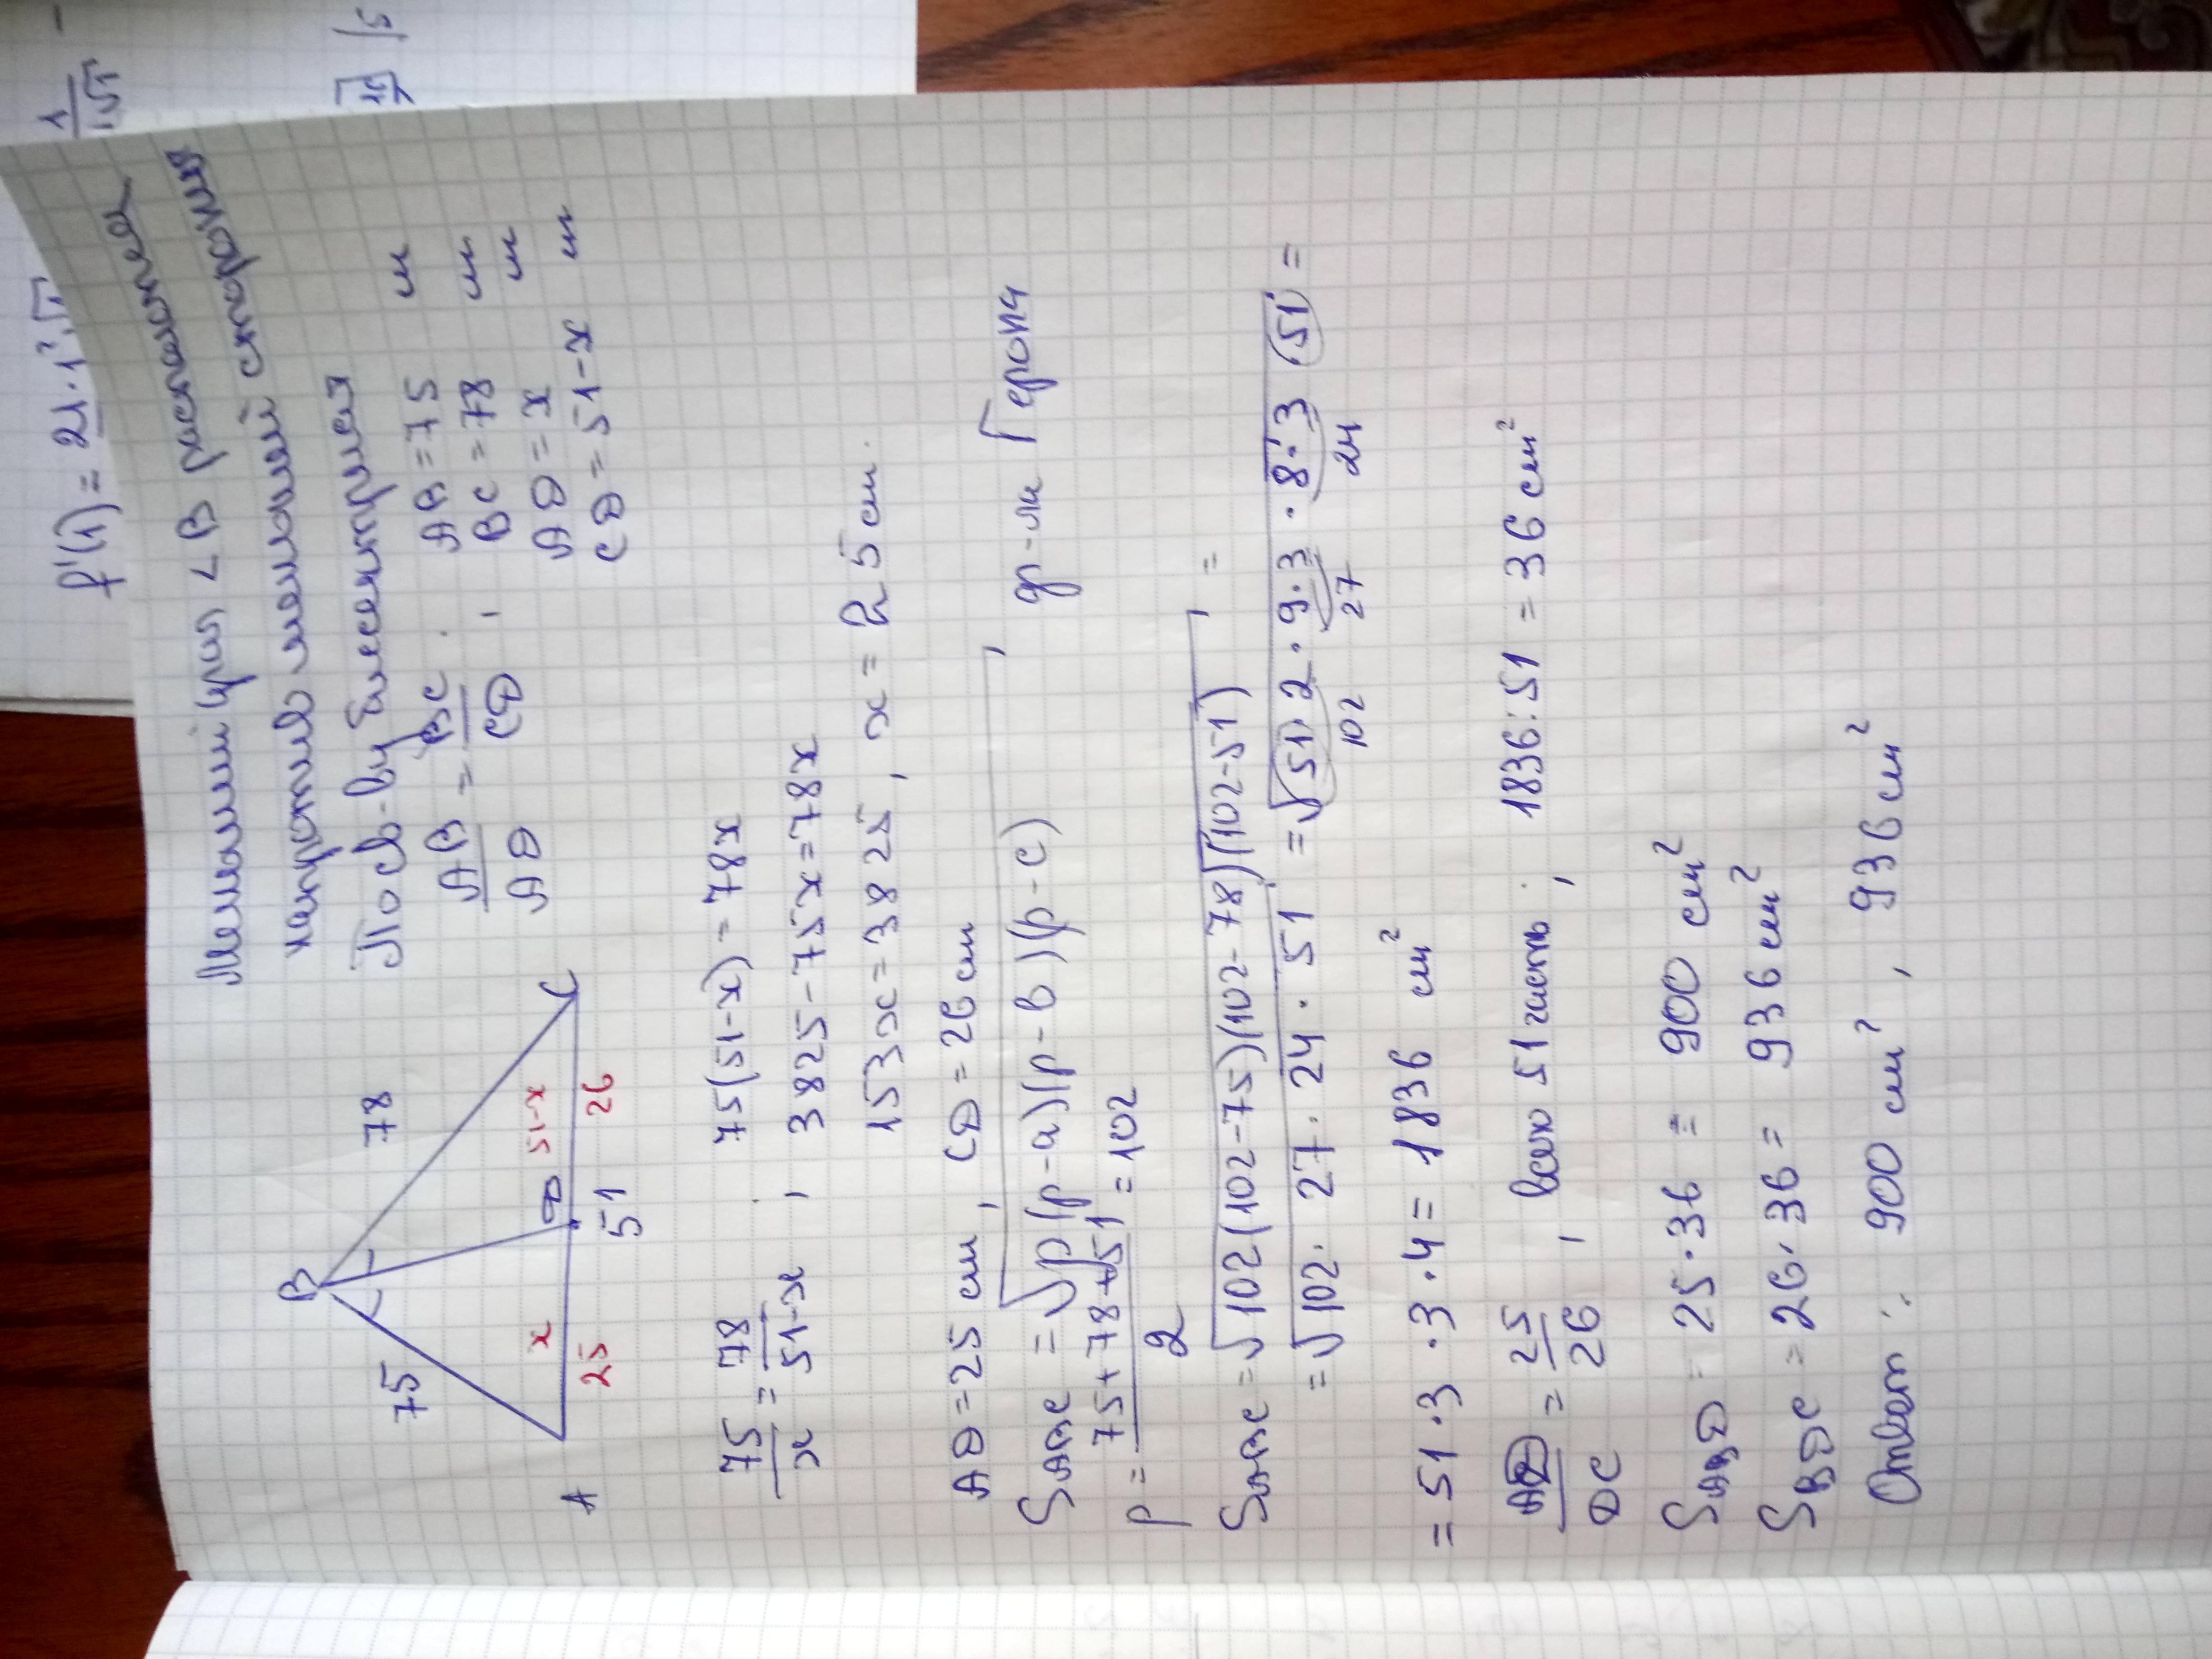 f'(1) = 21·1²·√1
Меньший угол ∠B располагается
напротив меньшей стороны
По св-ву биссектрисы
AB/AD = BC/CD ;
AB = 75 см
BC = 78 см
AD = x см
CD = 51-x см
B
75
78
x
D
51-x
A
25
51
26
C
75/x = 78/(51-x) ; 75(51-x) = 78x
3825-75x=78x
153x=3825 , x = 25 см.
AD=25 см , CD=26 см
S ABC = √p(p-a)(p-b)(p-c) , ф-ла Герона
p = (75+78+51)/2 = 102
S ABC = √102(102-75)(102-78)(102-51) =
= √102·27·24·51 = √51·2·9·3·8·3·51 =
102 27 24
= 51·3·3·4 = 1836 см²
AD/DC = 25/26 , всего 51 часть ; 1836:51 = 36 см²
S ABD = 25·36 = 900 см²
S BDC = 26·36 = 936 см²
Ответ: 900 см² , 936 см²